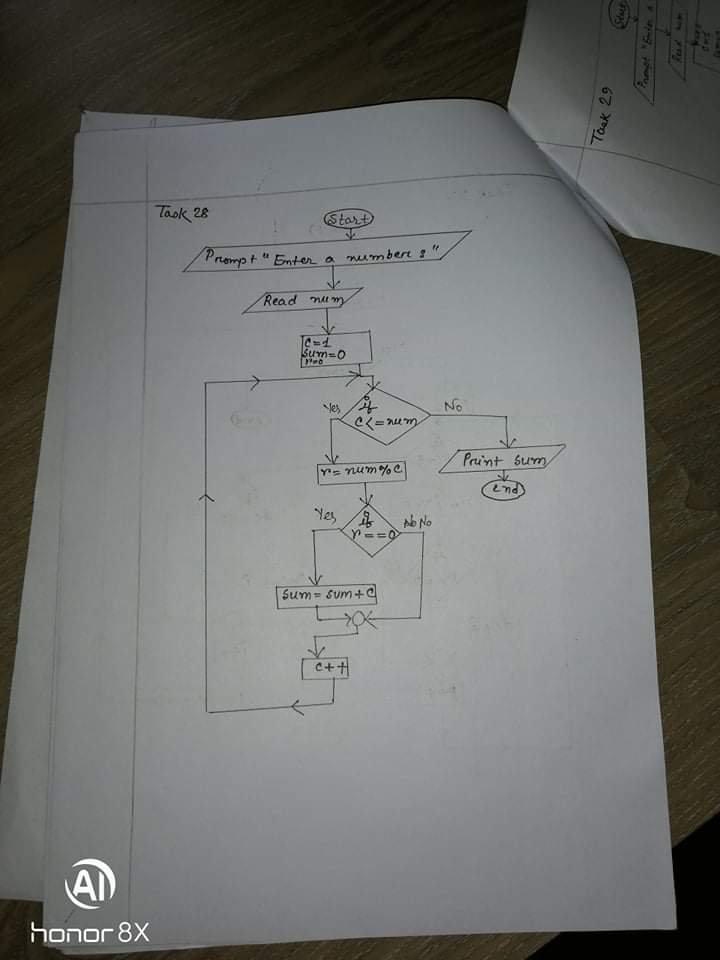 Task 28
Start
Prompt "Enter a number : "
Read num
c=1
sum=0
r=0
if
c<=num
Yes
No
r=num%c
Print sum
end
if
r==0
Yes
No
sum=sum+c
c++
Task 29
Start
Prompt "Enter a
Read num
c=1
AI
honor 8X